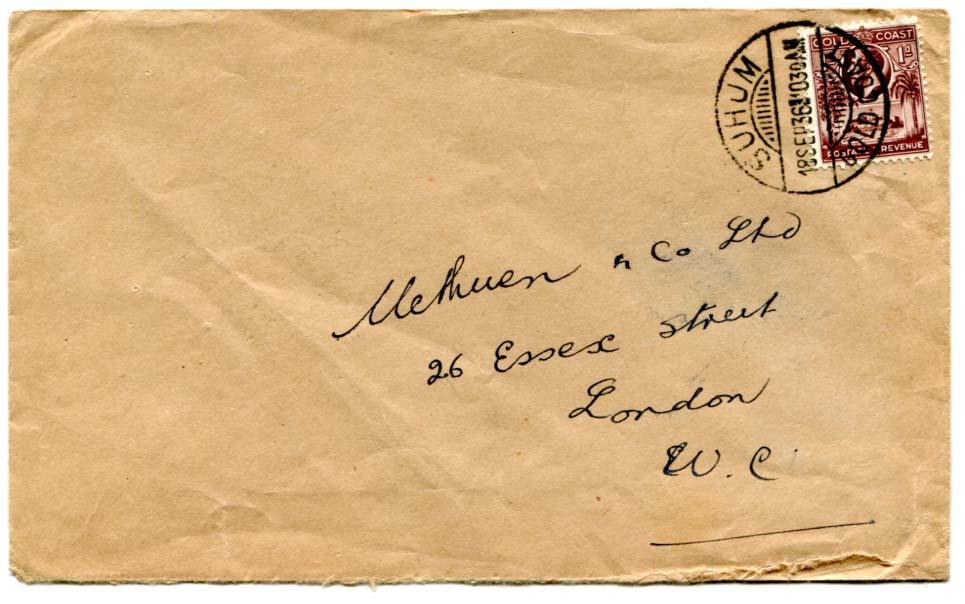 GOLD COAST
1d
POSTAGE REVENUE
SUHUM
18SEP36 1030AM
GOLD COAST
Methuen & Co Ltd
26 Essex Street
London
W.C.